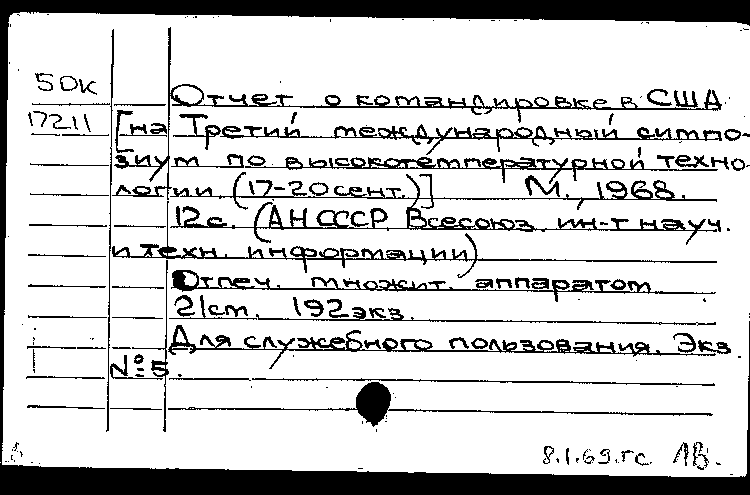 50к
17211
Отчет о командировке в США
[на Третий международный симпо-
зиум по высокотемпературной техно
логии (17-20 сент.)] М., 1968.
12с. (АН СССР. Всесоюз. ин-т науч.
и техн. информации)
Отпеч. множит. аппаратом
21см. 192экз.
Для служебного пользования. Экз.
№5.
8.1.69.гс 1В.